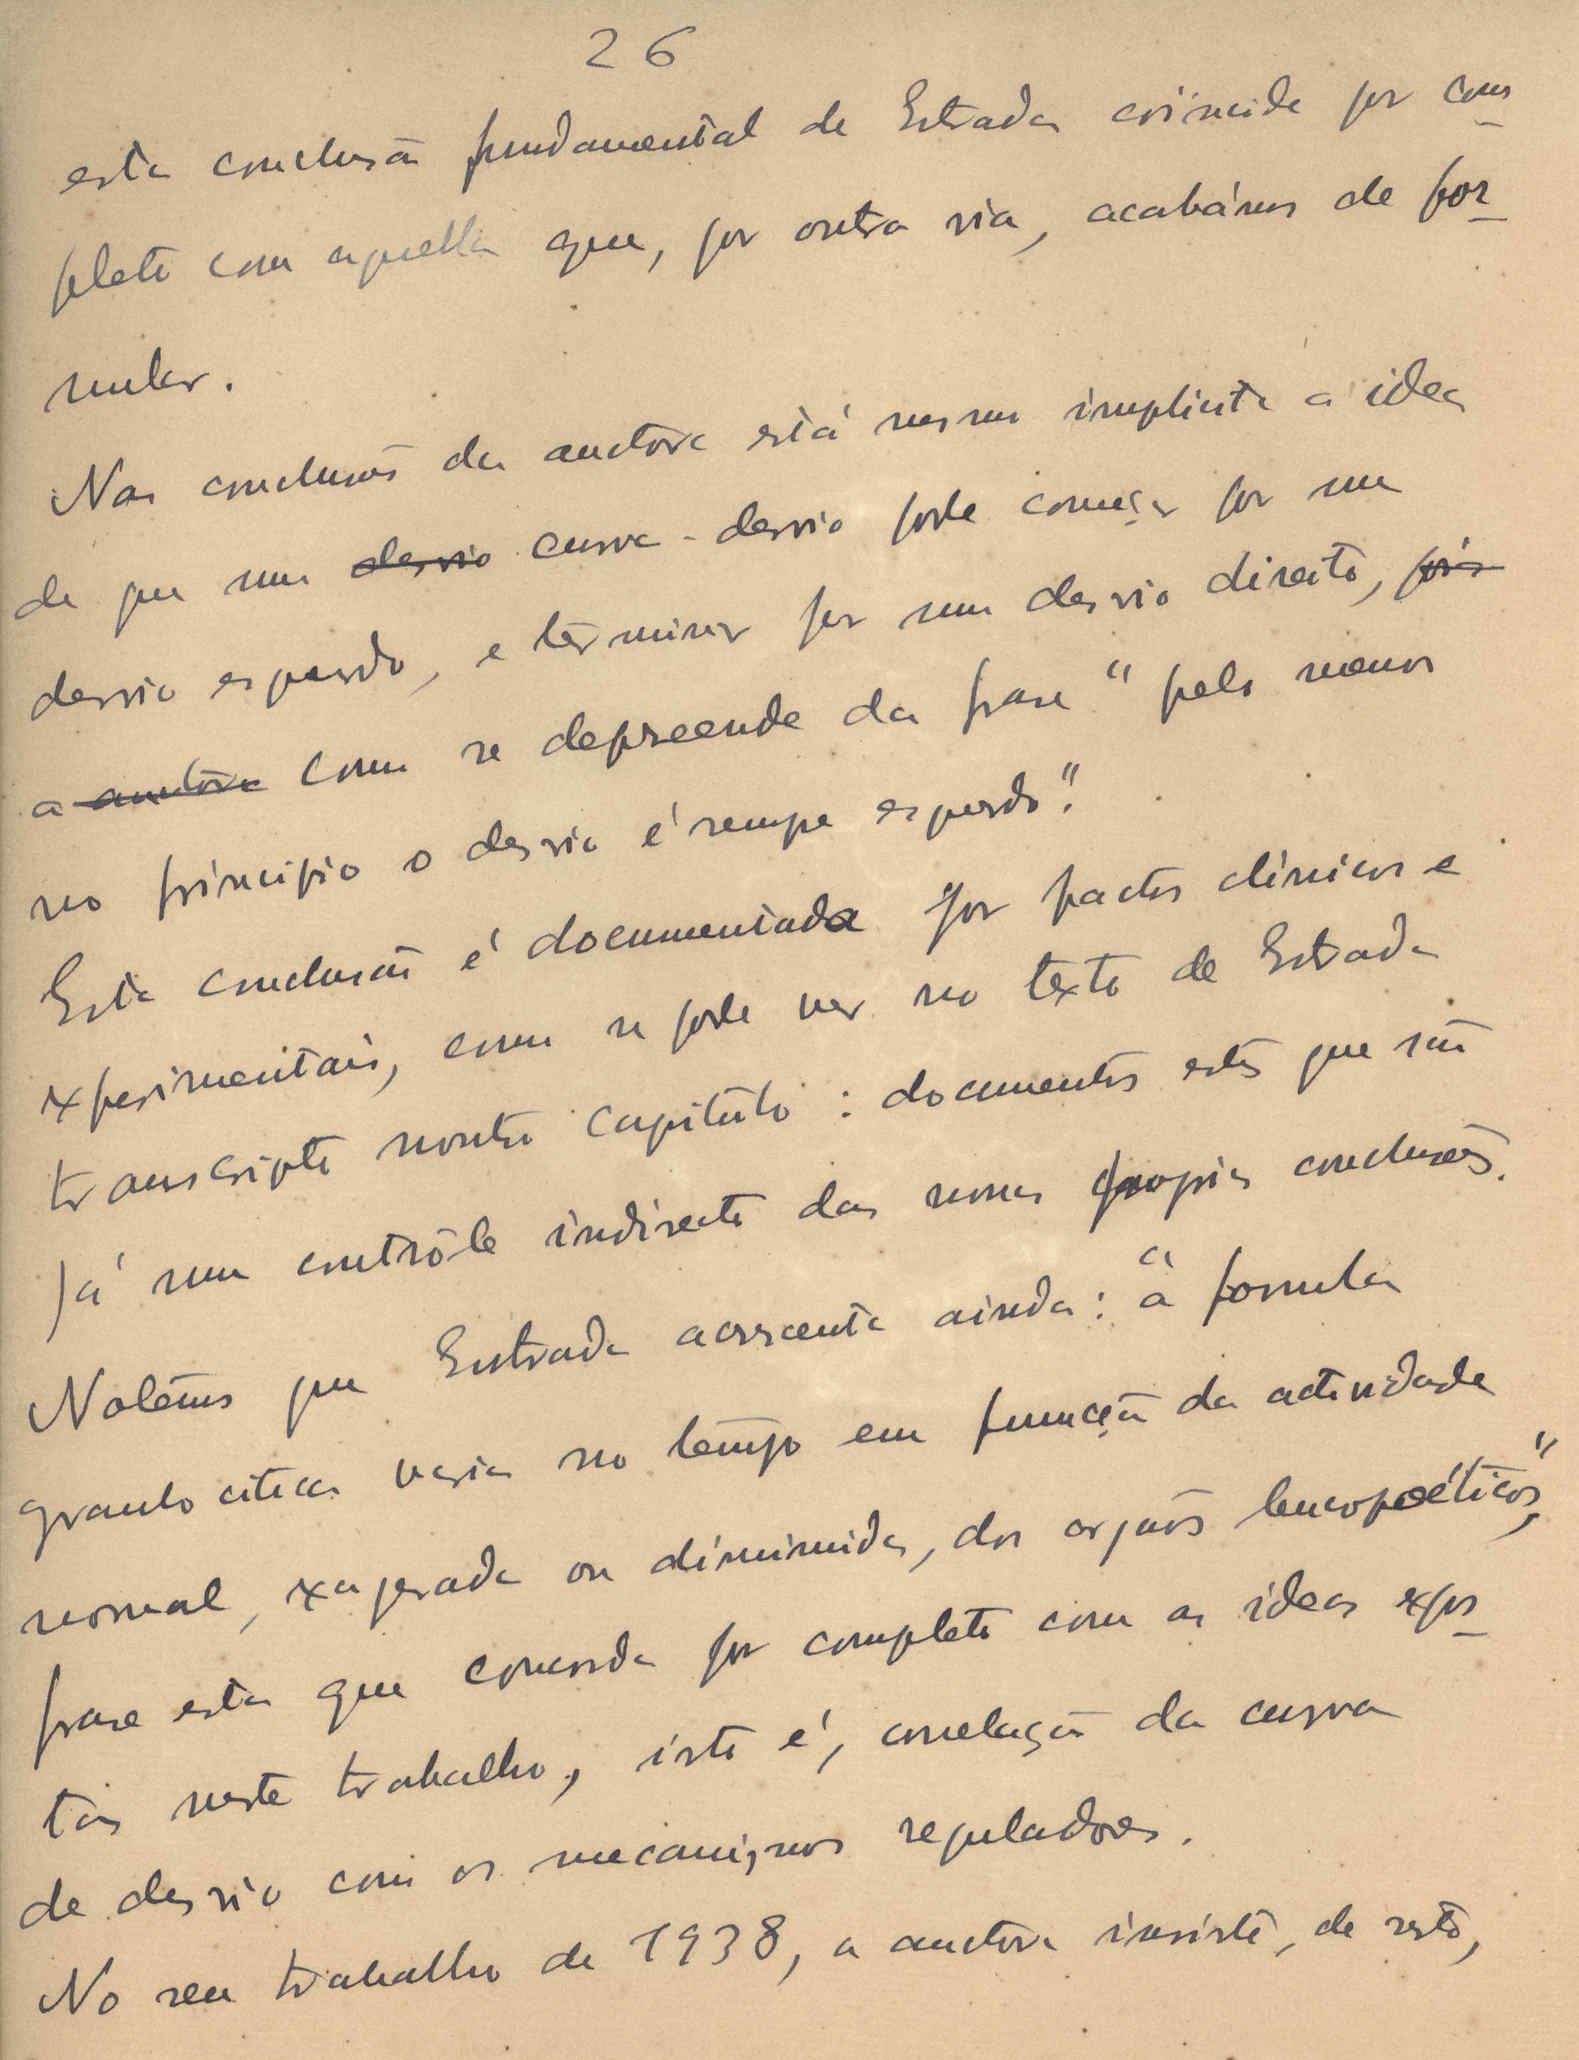 26
esta conclusão fundamental de Estrada coïncide por com
pleto com aquella que, por outra via, acabámos de for-
mular.
Nas conclusões da auctora está mesmo implicita a idea
de que uma ~~desvio~~ curva-desvio pode começar por um
desvio esquerdo, e terminar por um desvio direito, ~~pois~~
~~a auctora~~ como se depreende da frase "pelo menos
no principio o desvio é sempre esquerdo".
Esta conclusão é documentada por factos clinicos e
experimentais, como se pode ver no texto de Estrada
transcripto noutro capitulo: documentos estes que são
já um contrôle indirecto das nossas proprias conclusões.
Notêmos que Estrada acrescenta ainda: "a formula
granulocitica varia no tempo em funcção da actividade
normal, exagerada ou diminuida, dos orgãos leucopoéticos",
frase esta que concorda por completo com as ideas expos-
tas neste trabalho, isto é, correlação da curva
de desvio com os mecanismos reguladores.
No seu trabalho de 1938, a auctora insiste, de resto,